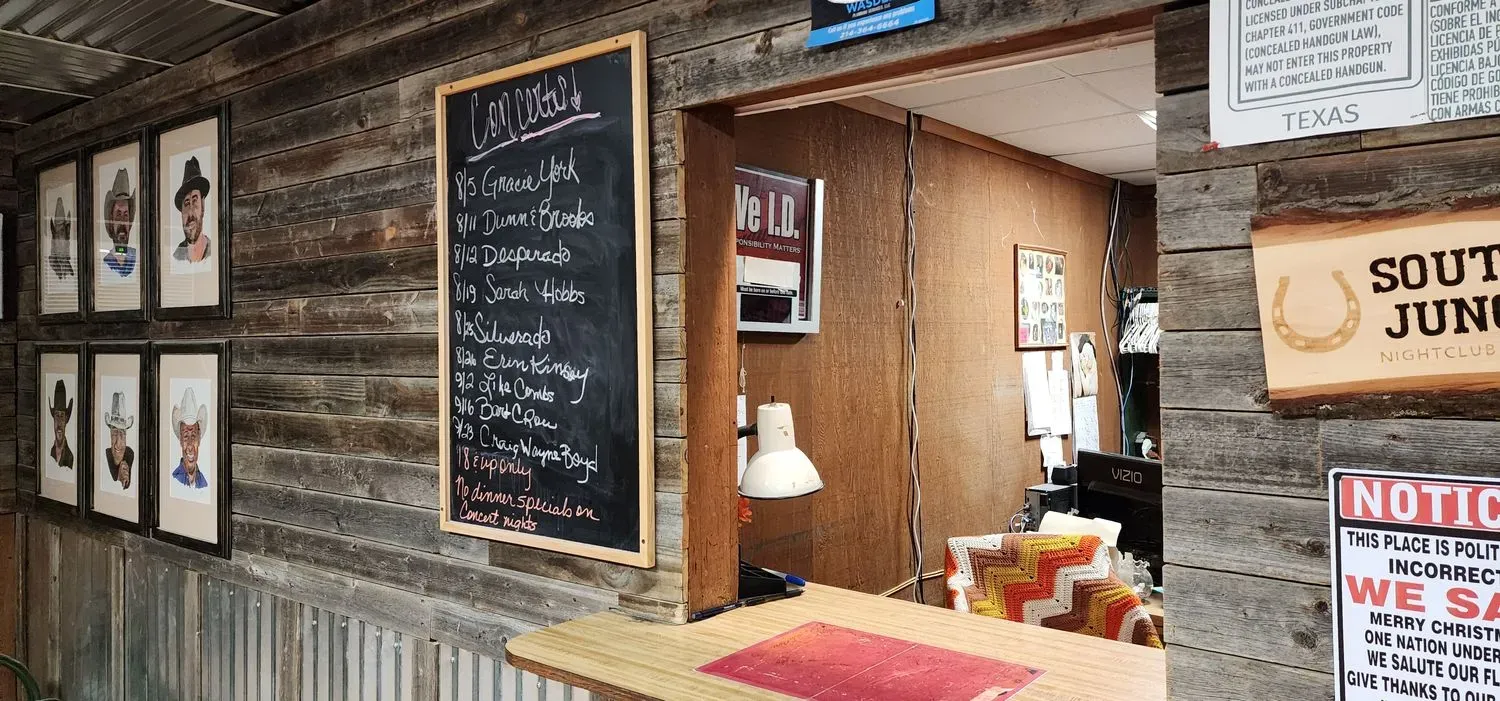 Concerts!
8/5 Gracie York
8/11 Dunn & Brooks
8/12 Desperado
8/19 Sarah Hobbs
8/25 Silverado
8/26 Erin Kinsey
9/2 Like Combs
9/16 Bard C Row
9/23 Craig Wayne Boyd
18 & up only
No dinner specials on
Concert nights
Call us if you experience any problems
214-364-6664
Ve I.D.
PONSIBILITY MATTERS
VIZIO
LICENSED UNDER SUBCHAP
CHAPTER 411, GOVERNMENT CODE
(CONCEALED HANDGUN LAW),
MAY NOT ENTER THIS PROPERTY
WITH A CONCEALED HANDGUN.
TEXAS
CONFORME A
(SOBRE EL IN
LICENCIA DE
EXHIBIDAS PÚ
LICENCIA BAJO
CÓDIGO DE GO
TIENE PROHIB
CON ARMAS C
SOUT
JUNC
NIGHTCLUB
NOTIC
THIS PLACE IS POLIT
INCORREC
WE SA
MERRY CHRISTM
ONE NATION UNDER
WE SALUTE OUR FL
GIVE THANKS TO OUR